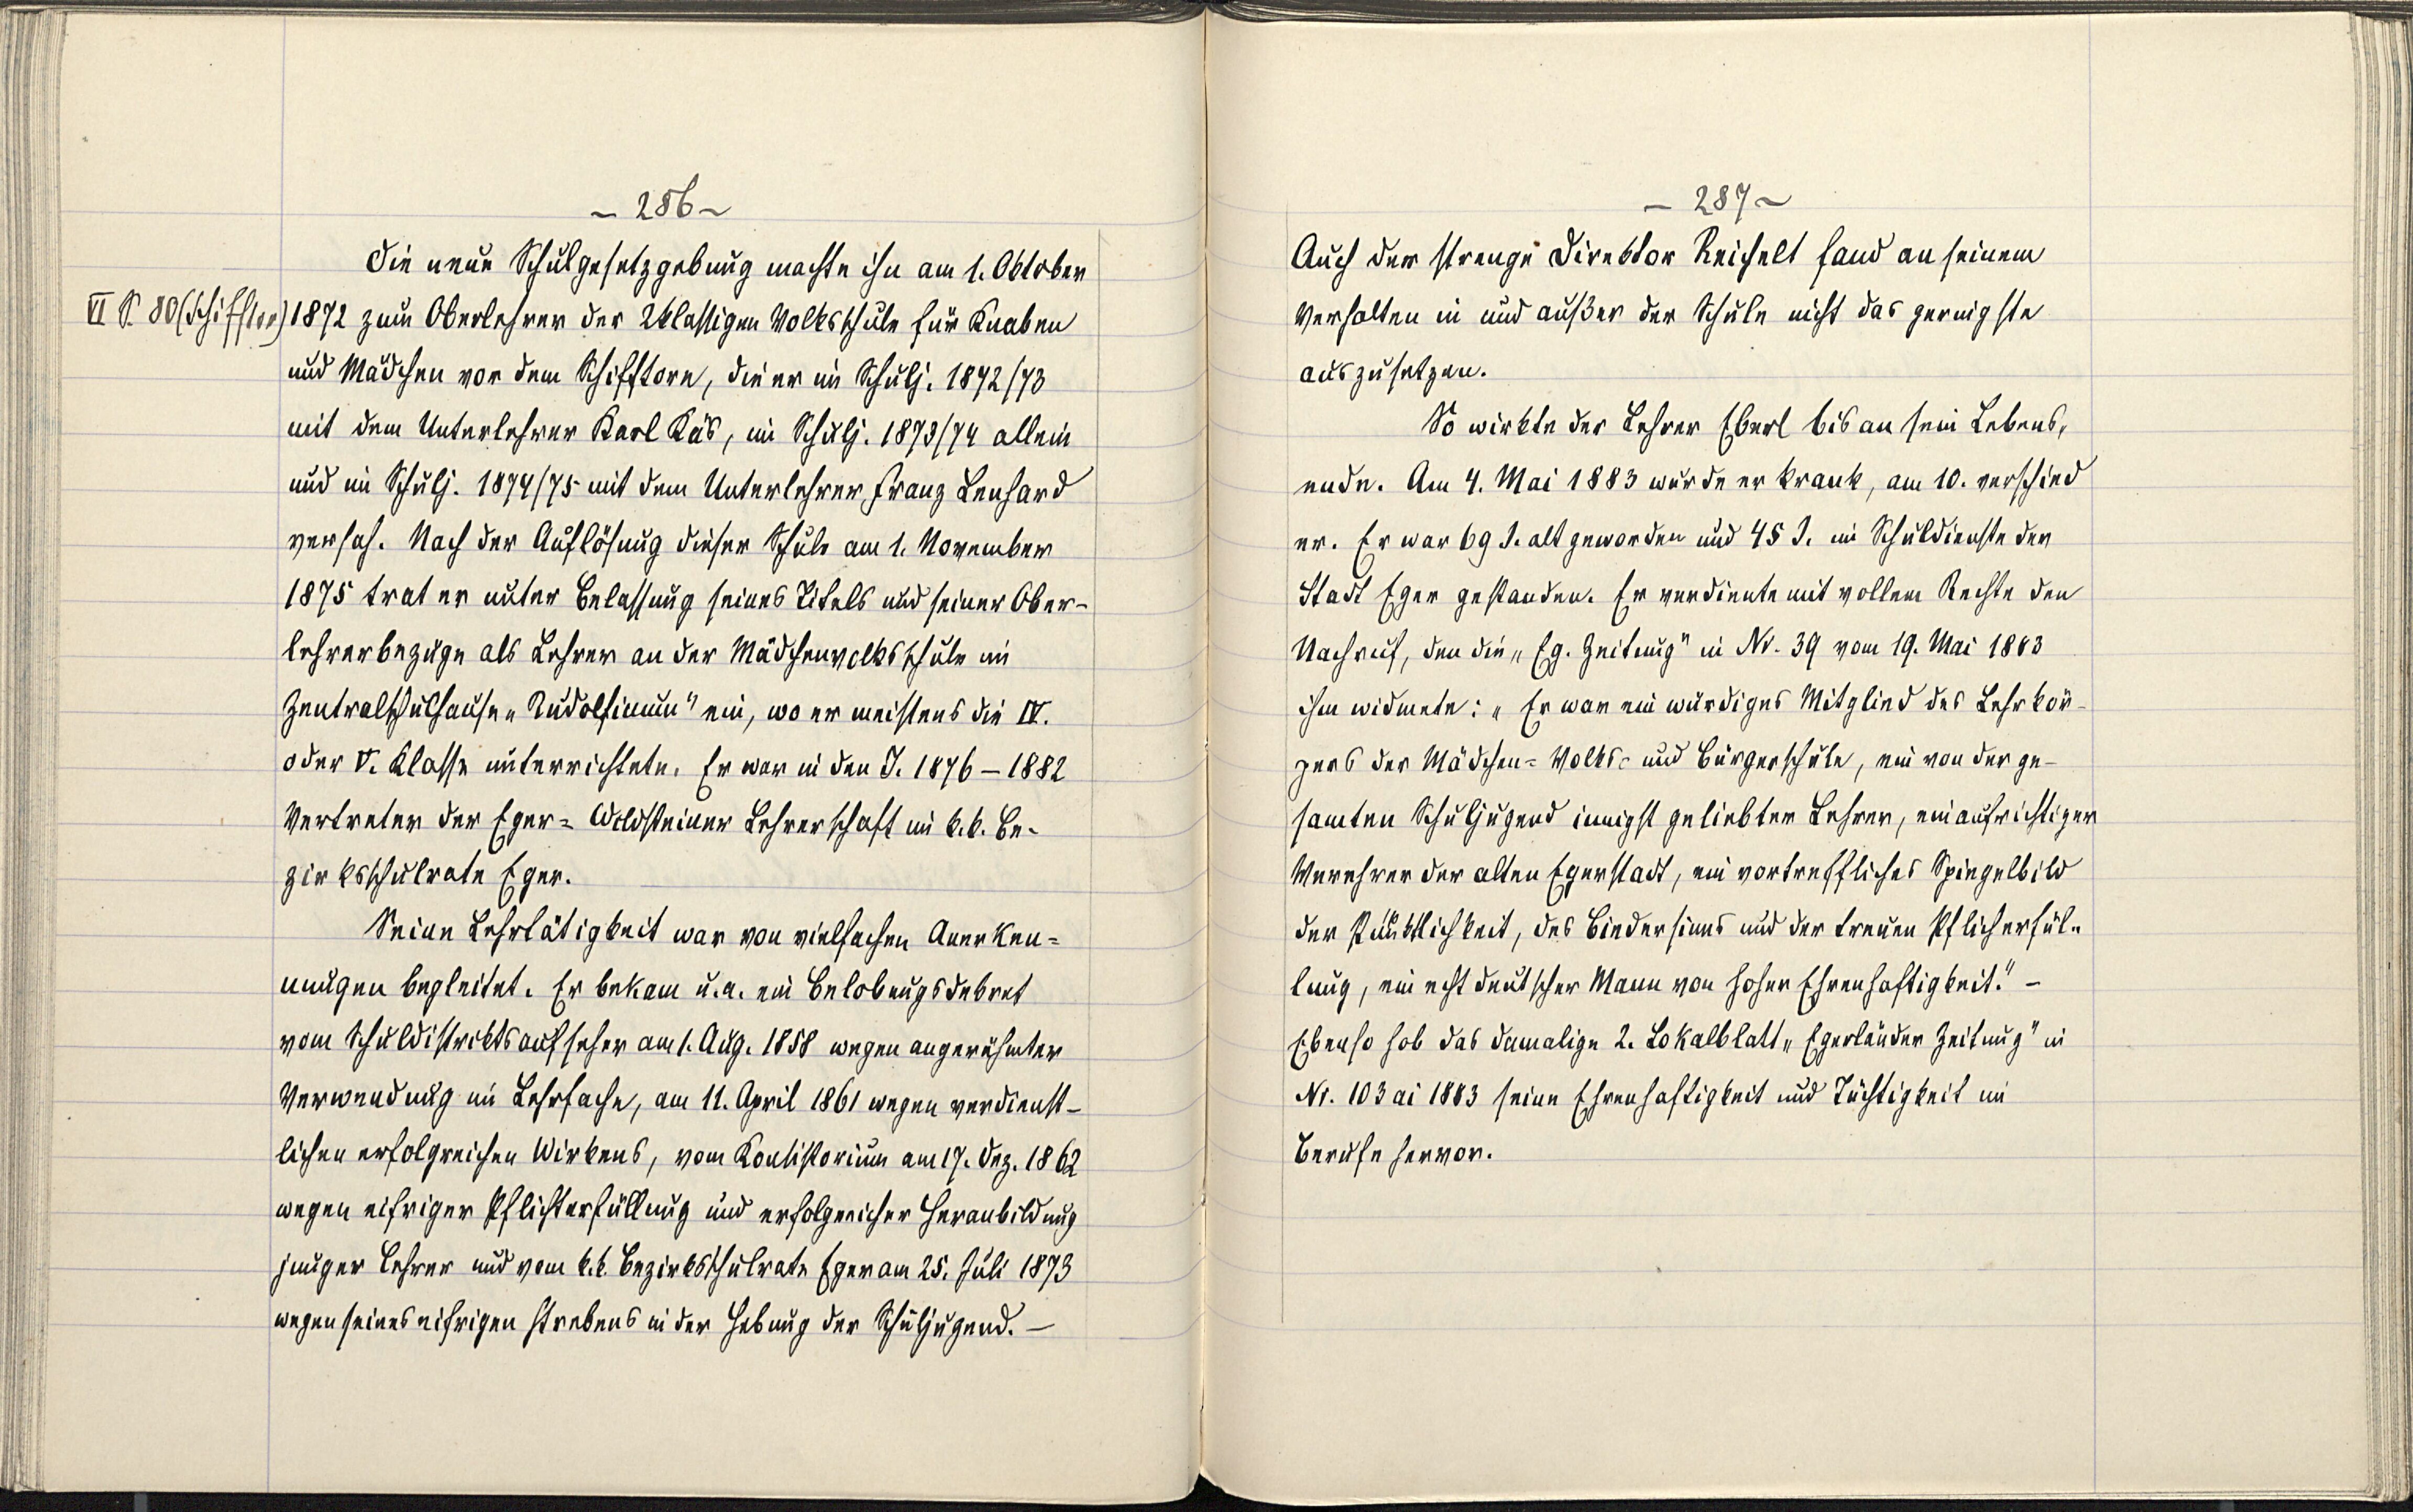 - 286 -
Die neue Schulgesetzgebung machte ihn am 1. Oktober
VI S. 80 (Schifftor)
1872 zum Oberlehrer der 2klassigen Volksschule für Knaben
und Mädchen vor dem Schifftore, die er im Schulj. 1872/73
mit dem Unterlehrer Karl Käs, im Schulj. 1873/74 allein
und im Schulj. 1874/75 mit dem Unterlehrer Franz Lenhard
versah. Nach der Auflösung dieser Schule am 1. November
1875 trat er unter Belassung seines Titels und seiner Ober-
lehrerbezüge als Lehrer an der Mädchenvolksschule im
Zentralschulhause „Rudolfinum" ein, wo er meistens die IV.
oder V. Klasse unterrichtete. Er war in den J. 1876 – 1882
Vertreter der Eger- Wildsteiner Lehrerschaft im k.k. Be-
zirksschulrate Eger.
Seine Lehrtätigkeit war von vielfachen Anerken-
nungen begleitet. Er bekam u.a. ein Belobungsdekret
vom Schuldistriktsaufseher am 1. Aug. 1858 wegen angerühmter
Verwendung im Lehrfache, am 11. April 1861 wegen verdienst-
lichen erfolgreichen Wirkens, vom Konsistorium am 17. Dez. 1862
wegen eifriger Pflichterfüllung und erfolgreicher Heranbildung
junger Lehrer und vom k.k. Bezirksschulrate Eger am 25. Juli 1873
wegen seines eifrigen Strebens in der Hebung der Schuljugend. –
- 287 -
Auch der strenge Direktor Reichelt fand an seinem
Verhalten in und außer der Schule nicht das geringste
auszusetzen.
So wirkte der Lehrer Eberl bis an sein Lebens-
ende. Am 4. Mai 1883 wurde er krank, am 10. verschied
er. Er war 69 J. alt geworden und 45 J. im Schuldienste der
Stadt Eger gestanden. Er verdiente mit vollem Rechte den
Nachruf, den die „Eg. Zeitung" in Nr. 39 vom 19. Mai 1883
ihm widmete: „Er war ein würdiges Mitglied des Lehrkör-
pers der Mädchen- Volks- und Bürgerschule, ein von der ge-
samten Schuljugend innigst geliebter Lehrer, ein aufrichtiger
Verehrer der alten Egerstadt, ein vortreffliches Spiegelbild
der Pünktlichkeit, des Biedersinns und der treuen Pflicherfül-
lung, ein echt deutscher Mann von hoher Ehrenhaftigkeit." –
Ebenso hob das damalige 2. Lokalblatt „Egerländer Zeitung" in
Nr. 103 ai 1883 seine Ehrenhaftigkeit und Tüchtigkeit im
Berufe hervor.